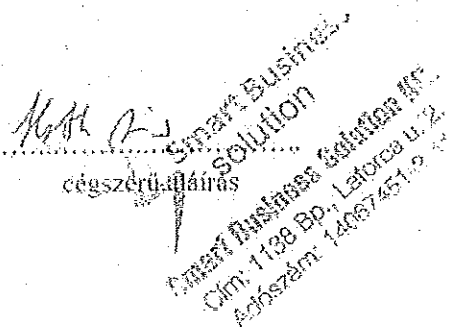 cégszerű aláírás
Smart Business
solution
Smart Business Solution Kft.
Cím: 1138 Bp., Latorca u. 2.
Adószám: 14067451-2